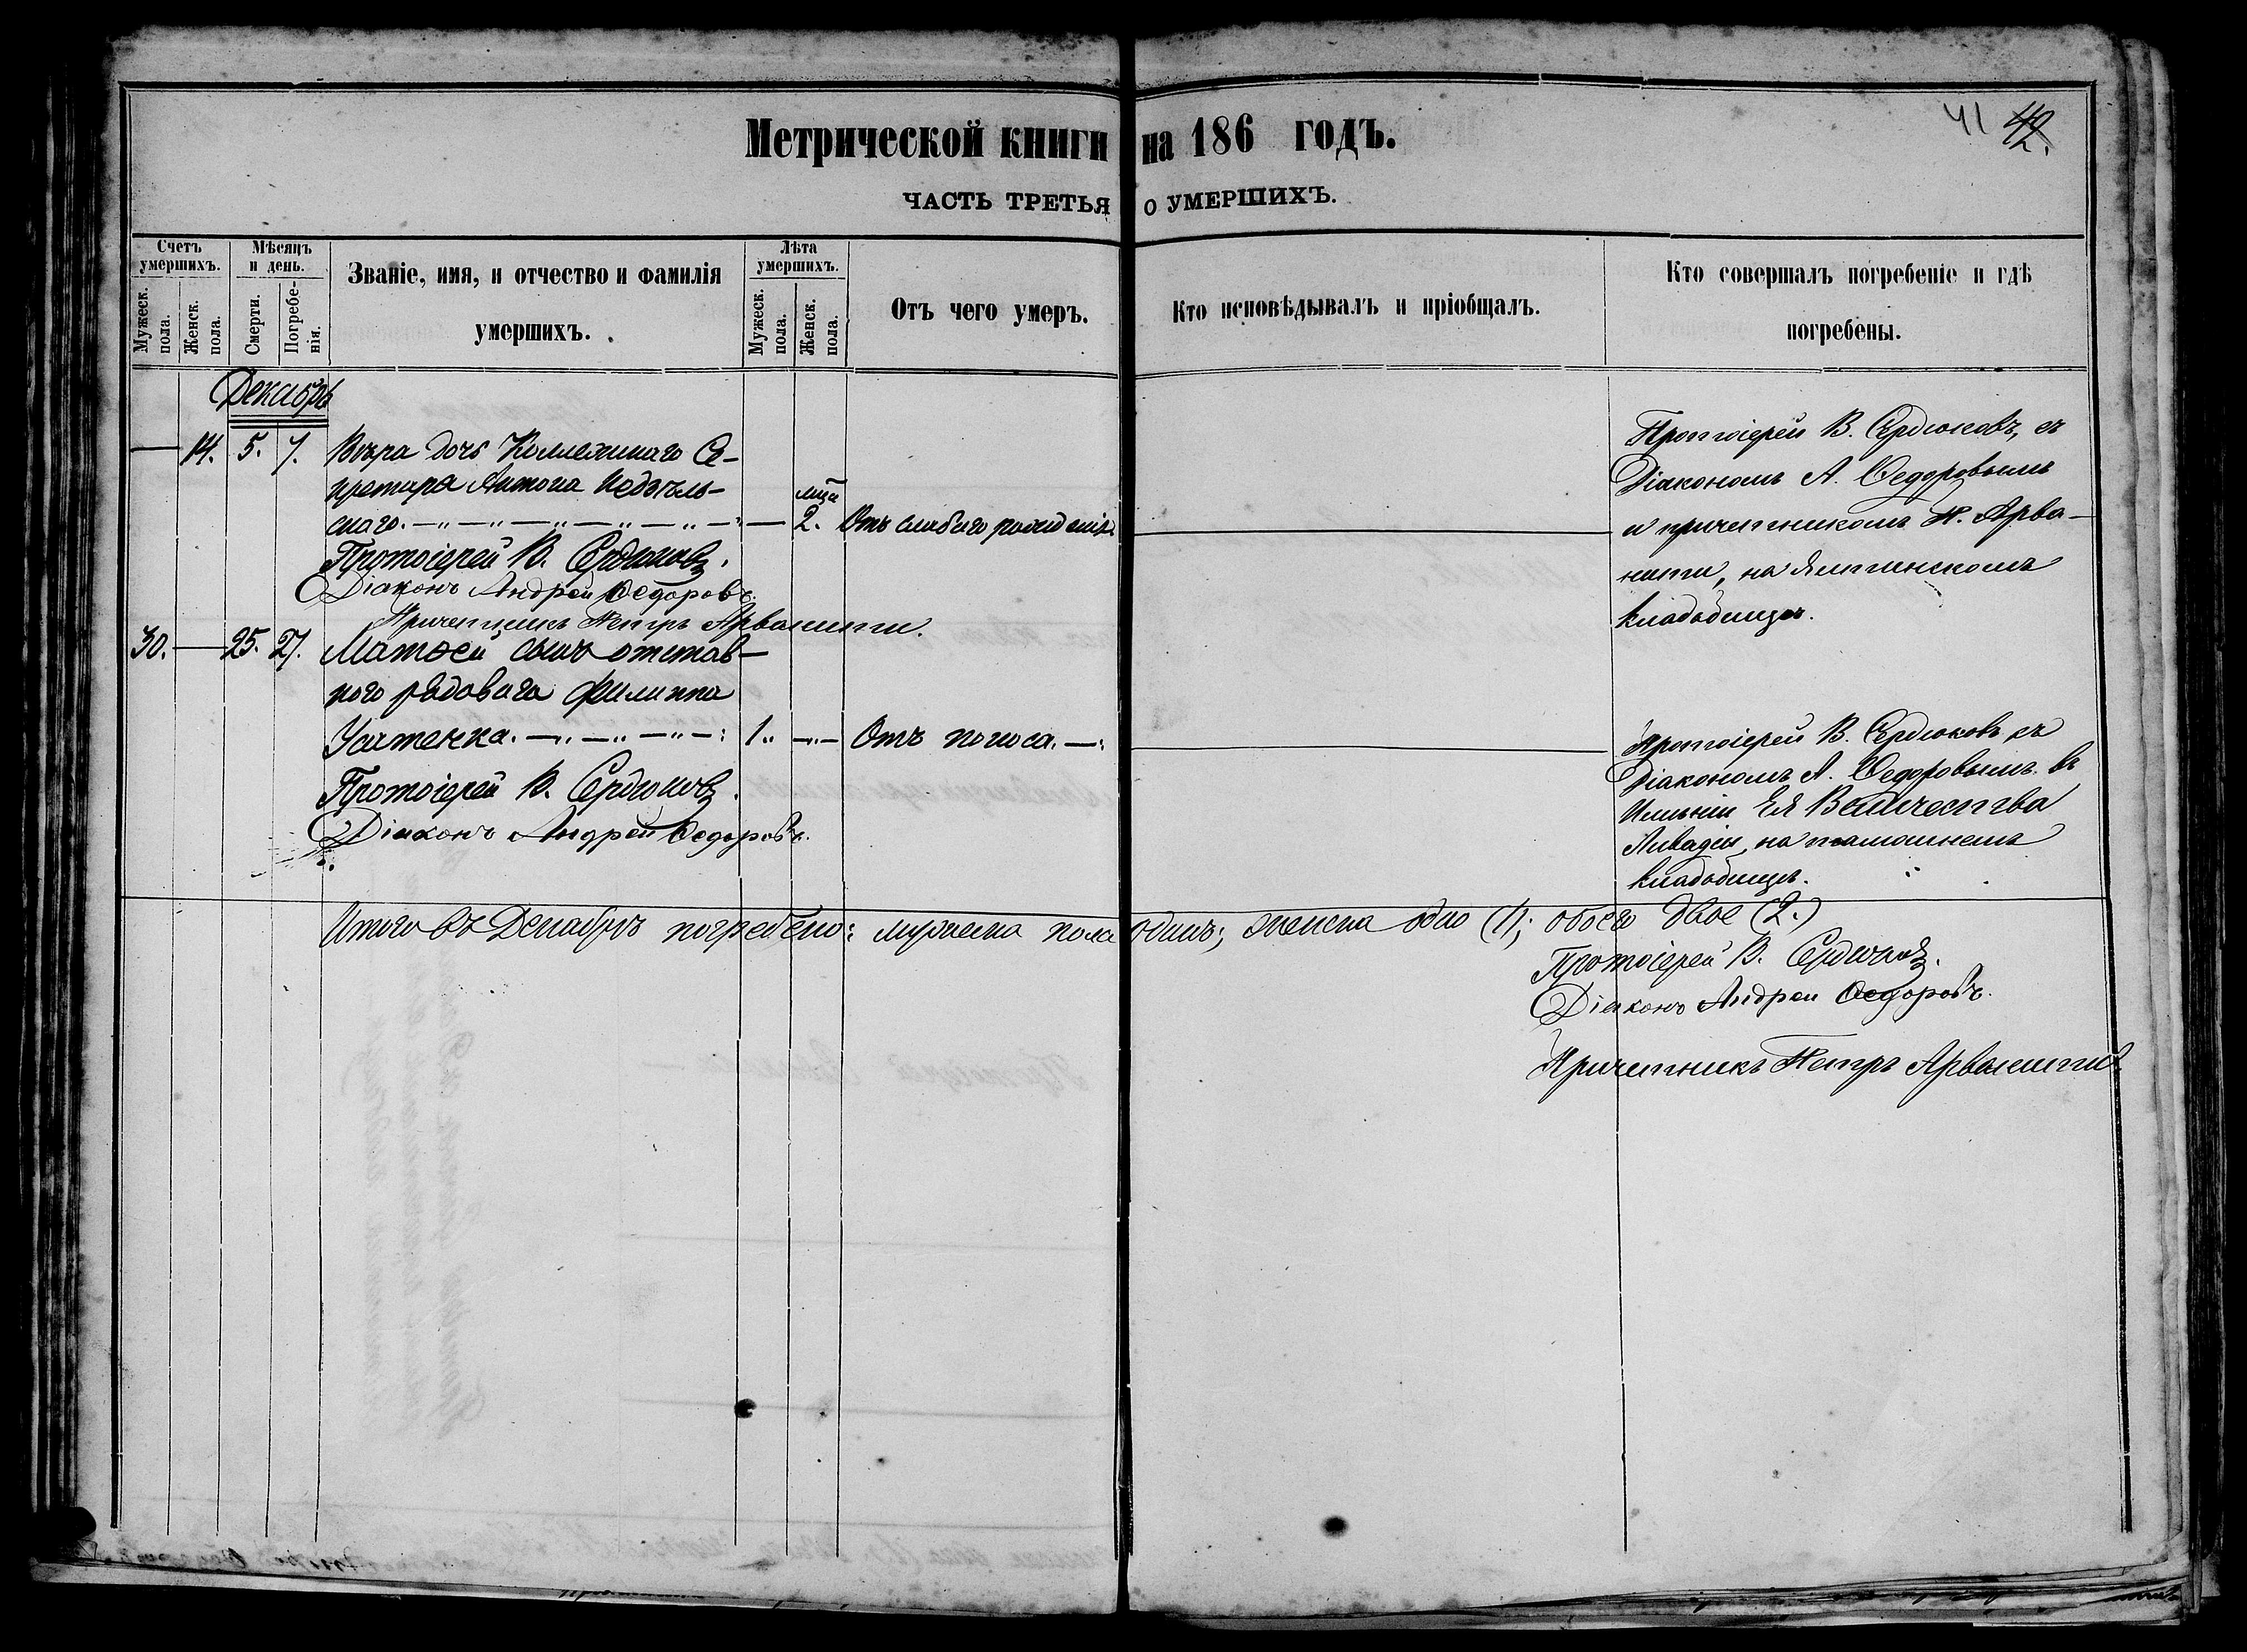 Метрической книги на 186 годъ.
41 42.
ЧАСТЬ ТРЕТЬЯ О УМЕРШИХЪ.
Счетъ умершихъ.
Мужеск. пола.
Женск. пола.
Мѣсяцъ и день.
Смерти.
Погребенія.
Званіе, имя, и отчество и фамилія
умершихъ.
Лѣта умершихъ.
Мужеск. пола.
Женск. пола.
Отъ чего умеръ.
Кто исповѣдывалъ и пріобщалъ.
Кто совершалъ погребеніе и гдѣ
погребены.
Декабрь
— 14. 5. 7. Вѣра дочь Коллежскаго Се-
кретаря Антона Недзѣль-
скаго. 2. Отъ слабаго рожденія
Протоіерей В. Сердюковъ, съ
Діакономъ А. Ѳедоровымъ
и причетникомъ П. Арва-
нитти, на Ялтинскомъ
кладбищѣ.
Протоіерей В. Сердюковъ.
Діаконъ Андрей Ѳедоровъ.
Причетникъ Петръ Арванитти.
30. — 25. 27. Матѳей сынъ отстав-
ного рядоваго Филиппа
Усатенка. 1. Отъ поноса.
Протоіерей В. Сердюковъ съ
Діакономъ А. Ѳедоровымъ въ
Имѣніи Ея Величества
Ливадіи, на тамошнемъ
кладбищѣ.
Протоіерей В. Сердюковъ.
Діаконъ Андрей Ѳедоровъ.
Итого въ Декабрѣ погребено: мужеска пола одинъ; женска одно (1); обоего двое (2.)
Протоіерей В. Сердюковъ.
Діаконъ Андрей Ѳедоровъ.
Причетникъ Петръ Арванитти.